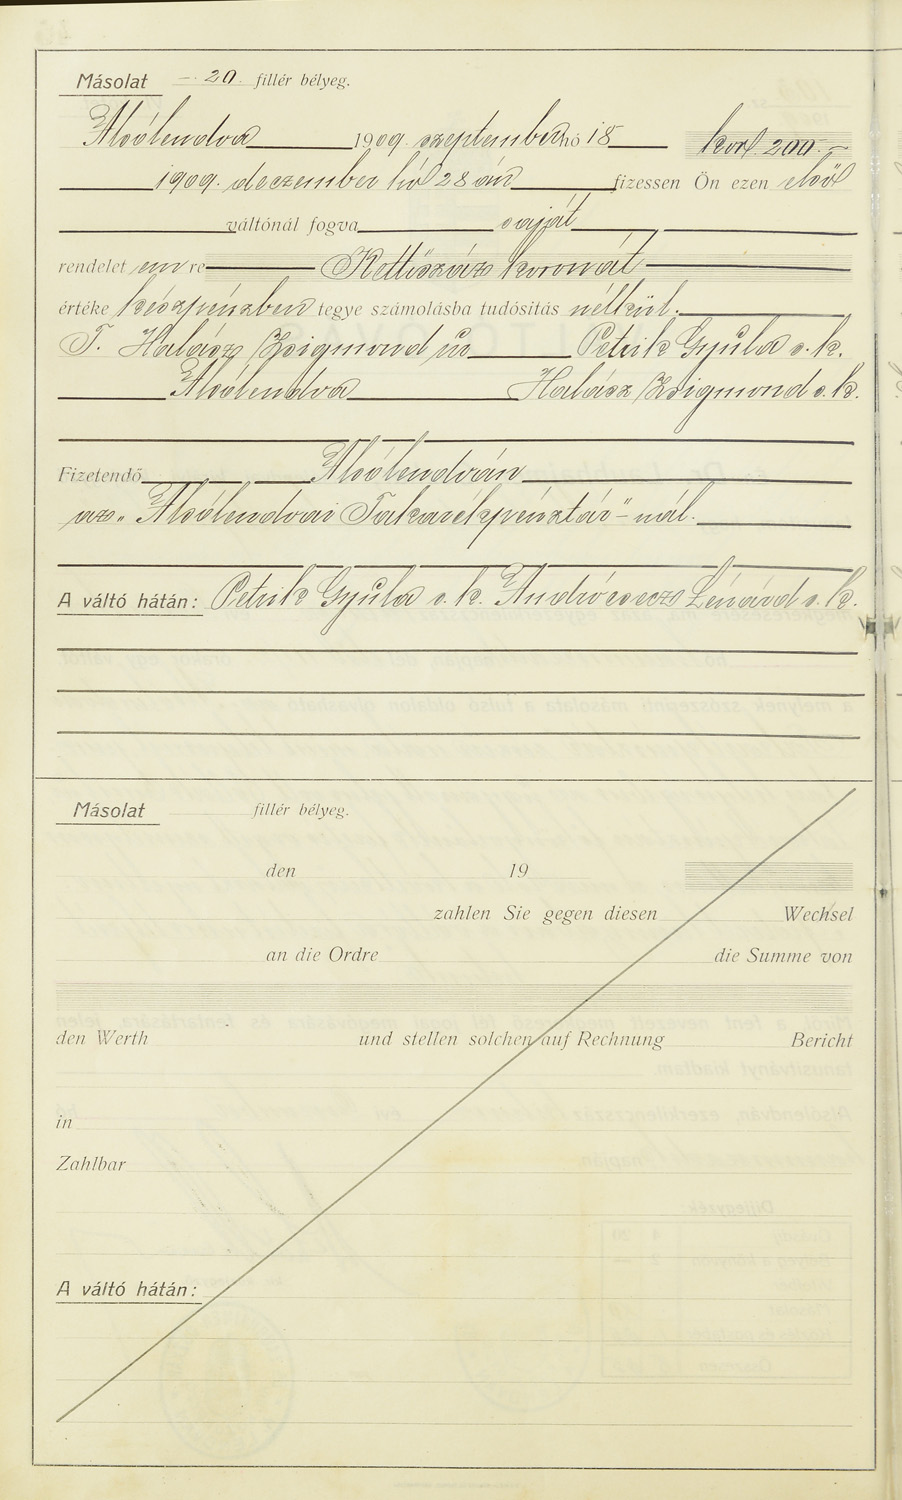 Másolat - 20. fillér bélyeg.
Alsólendva 1909. szeptember hó 18 kor. 200.-
1909. deczember hó 28 án fizessen Ön ezen első
váltónál fogva saját
rendelet em re Kettőszáz koronát
értéke készpénzben tegye számolásba tudósitás nélkül.
T. Halász Zsigmond úr Petrik Gyula s. k.
Alsólendva Halász Zsigmond s. k.
Fizetendő Alsólendván
az "Alsólendvai Takarékpénztár"-nál.
A váltó hátán: Petrik Gyula s. k. Lénárd s. k.
Másolat fillér bélyeg.
den 19
zahlen Sie gegen diesen Wechsel
an die Ordre die Summe von
den Werth und stellen solchen auf Rechnung Bericht
in
Zahlbar
A váltó hátán: